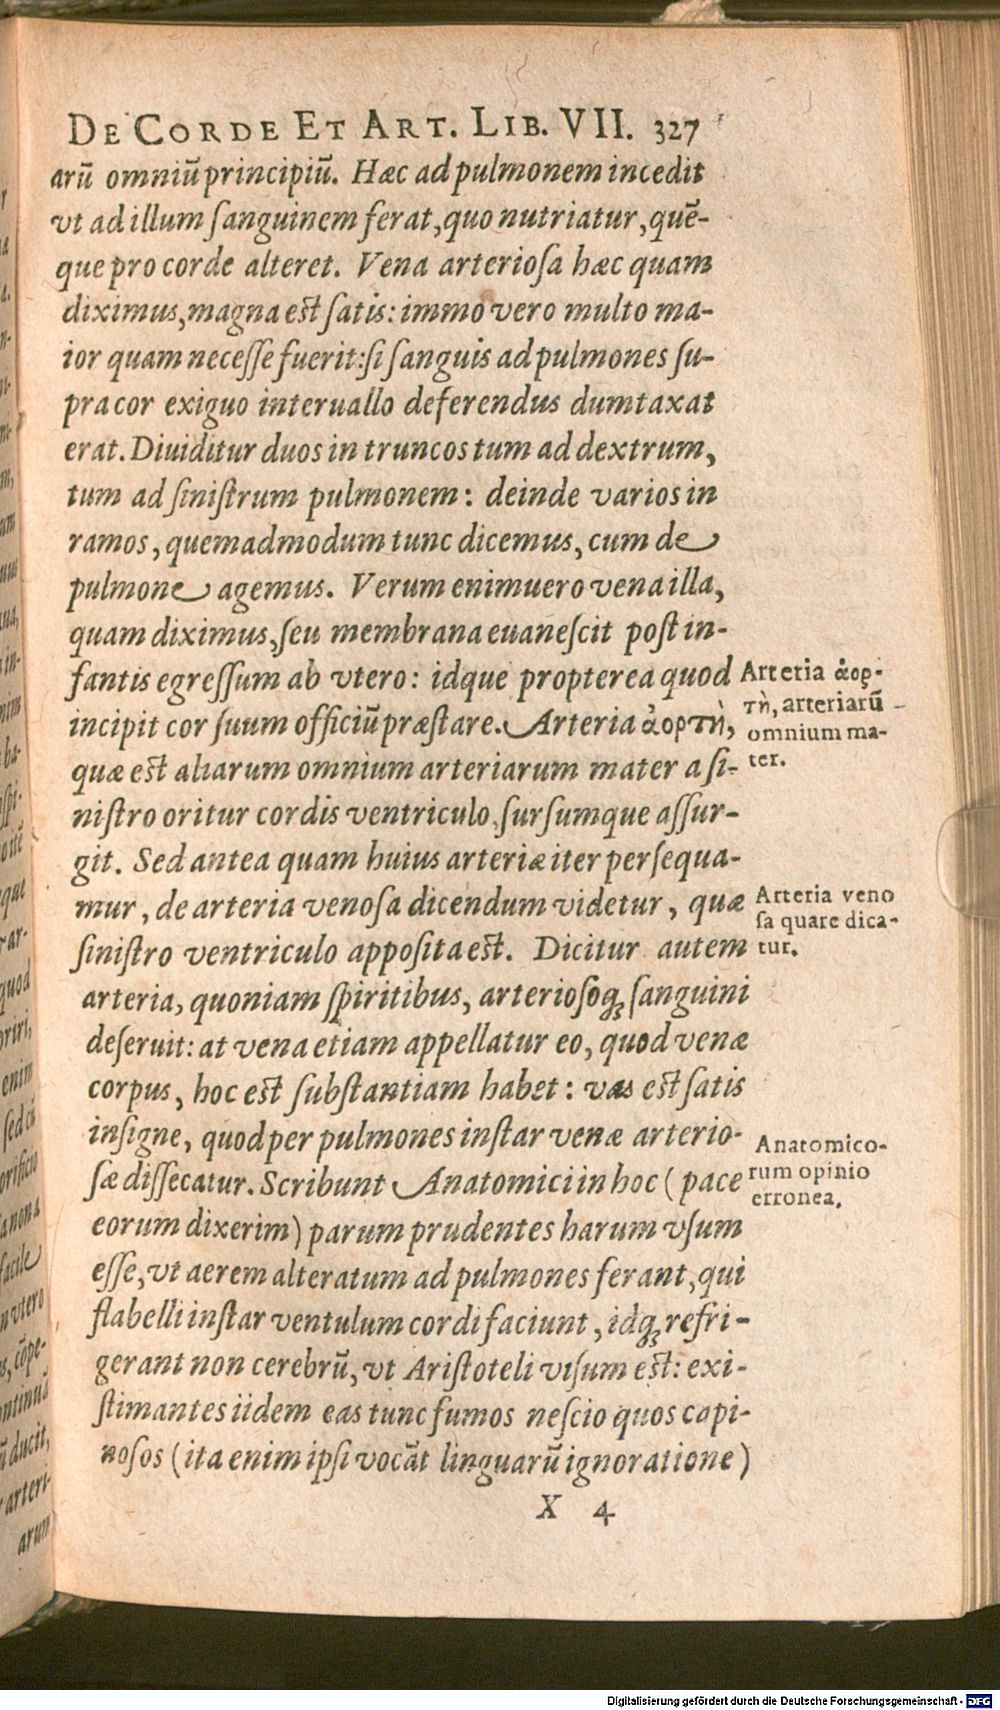 DE CORDE ET ART. LIB. VII. 327
arū omniū principiū. Hæc ad pulmonem incedit
vt ad illum ſanguinem ferat, quo nutriatur, quē-
que pro corde alteret. Vena arterioſa hæc quam
diximus, magna est ſatis: immo vero multo ma-
ior quam neceſſe fuerit: ſi ſanguis ad pulmones ſu-
pra cor exiguo interuallo deferendus dumtaxat
erat. Diuiditur duos in truncos tum ad dextrum,
tum ad ſiniſtrum pulmonem: deinde varios in
ramos, quemadmodum tunc dicemus, cum de
pulmone agemus. Verum enimuero vena illa,
quam diximus, ſeu membrana euaneſcit poſt in-
fantis egreſſum ab vtero: idque propterea quod
incipit cor ſuum officiū præſtare. Arteria ἀορτὴ,
quæ est aliarum omnium arteriarum mater a ſi-
niſtro oritur cordis ventriculo, ſurſumque aſſur-
git. Sed antea quam huius arteriæ iter perſequa-
mur, de arteria venoſa dicendum videtur, quæ
ſiniſtro ventriculo appoſita est. Dicitur autem
arteria, quoniam ſpiritibus, arterioſoq́ꝫ ſanguini
deſeruit: at vena etiam appellatur eo, quod venæ
corpus, hoc est ſubſtantiam habet: vas est ſatis
inſigne, quod per pulmones inſtar venæ arterio-
ſæ diſſecatur. Scribunt Anatomici in hoc (pace
eorum dixerim) parum prudentes harum vſum
eſſe, vt aerem alteratum ad pulmones ferant, qui
flabelli inſtar ventulum cordi faciunt, idq́ꝫ refri-
gerant non cerebrū, vt Ariſtoteli viſum est: exi-
ſtimantes iidem eas tunc fumos neſcio quos capi-
noſos (ita enim ipſi vocāt linguarū ignoratione)
X 4
Arteria ἀορ-
τὴ, arteriarū
omnium ma-
ter.
Arteria veno
ſa quare dica-
tur.
Anatomico-
rum opinio
erronea.
Digitalisierung gefördert durch die Deutsche Forschungsgemeinschaft - DFG